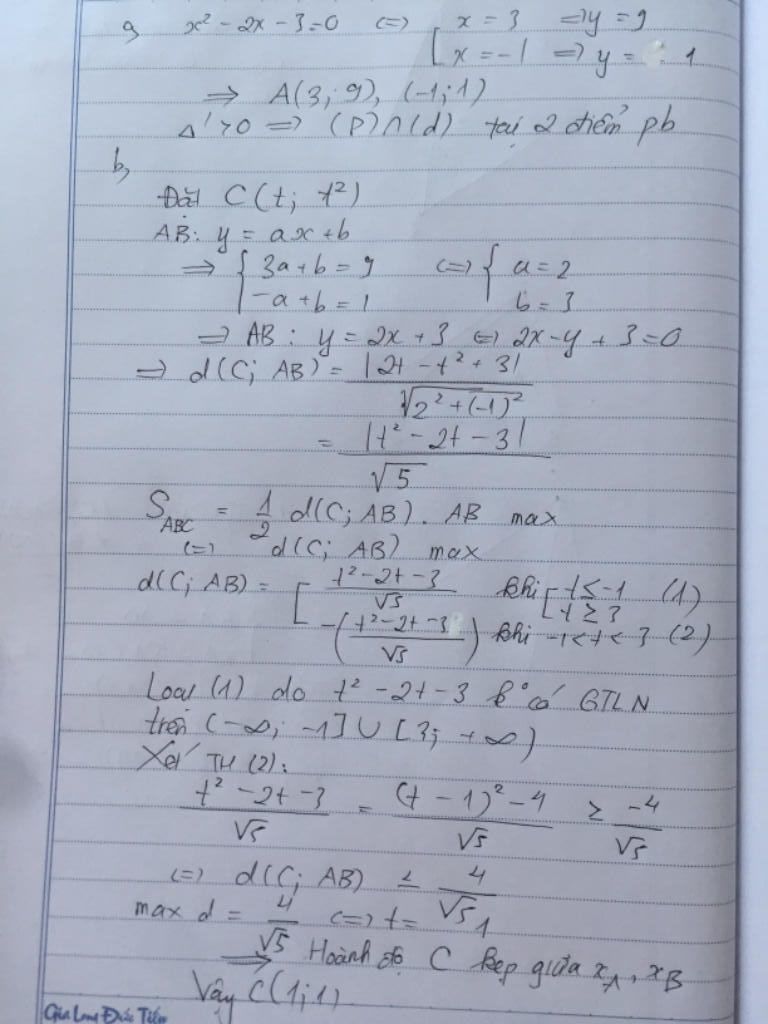 a, x² - 2x - 3 = 0 <=> [ x = 3 => y = 9
x = -1 => y = 1
=> A(3; 9), (-1; 1)
Δ' > 0 => (P) ∩ (d) tại 2 điểm pb
b,
Đặt C(t; t²)
AB: y = ax + b
=> { 3a + b = 9 <=> { a = 2
-a + b = 1 b = 3
=> AB : y = 2x + 3 <=> 2x - y + 3 = 0
=> d(C; AB) = |2t - t² + 3| / √(2² + (-1)²)
= |t² - 2t - 3| / √5
S_ABC = 1/2 d(C; AB). AB max
<=> d(C; AB) max
d(C; AB) = [ (t² - 2t - 3)/√5 khi [ t ≤ -1 (1)
t ≥ 3
-((t² - 2t - 3)/√5) khi -1 < t < 3 (2)
Loại (1) do t² - 2t - 3 k° có GTLN
trên (-∞; -1] ∪ [3; +∞)
Xét TH (2):
(t² - 2t - 3)/√5 = ((t - 1)² - 4)/√5 ≥ -4/√5
<=> d(C; AB) ≤ 4/√5
max d = 4/√5 <=> t = 1
=> Hoành độ C kẹp giữa x_A, x_B
Vậy C(1; 1)
Gia Long Đức Tiến